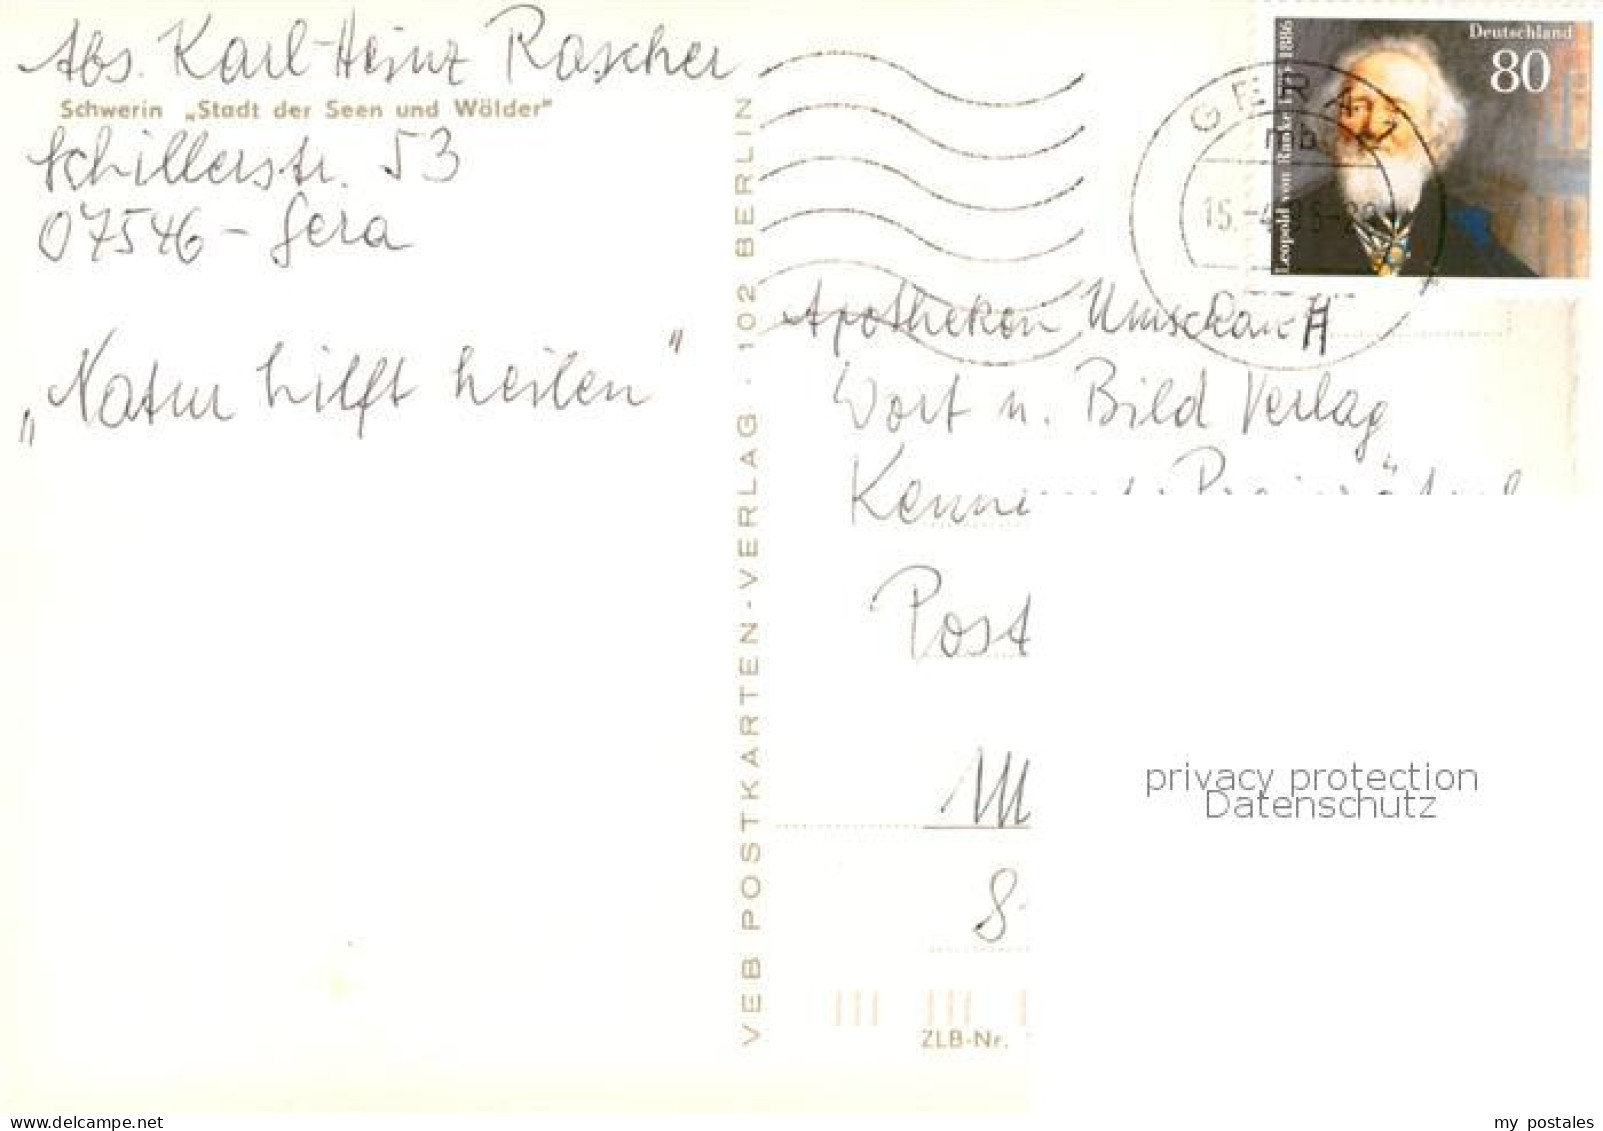 Abs. Karl-Heinz Rascher
Schwerin „Stadt der Seen und Wälder"
Schillerstr. 53
07546 - Gera
„Natur hilft heilen"
VEB POSTKARTEN-VERLAG · 102 BERLIN
Deutschland
80
Leopold von Ranke 1886
GERA
mb
15.-4.
Apotheken Umschau
Wort u. Bild Verlag
Post
privacy protection
Datenschutz
ZLB-Nr.
www.delcampe.net
my_postales